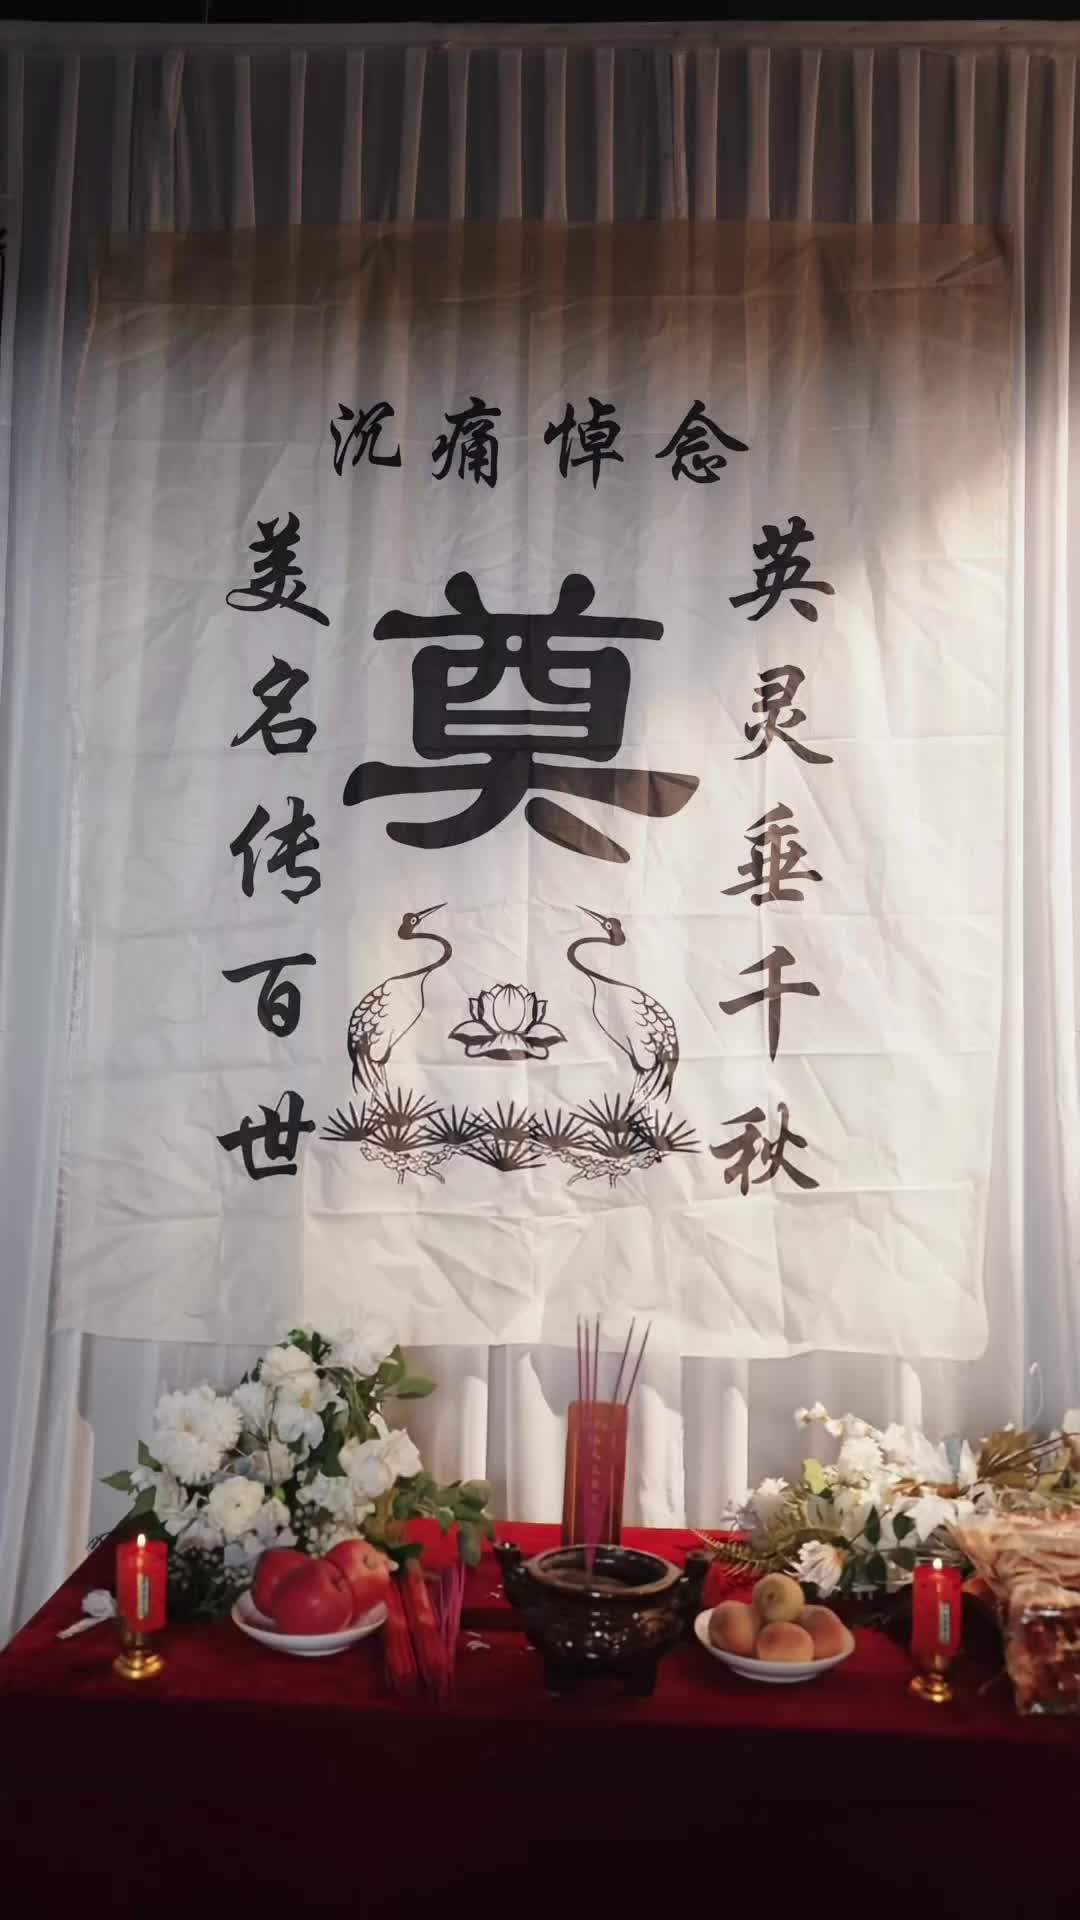 沉痛悼念
英灵垂千秋
奠
美名传百世